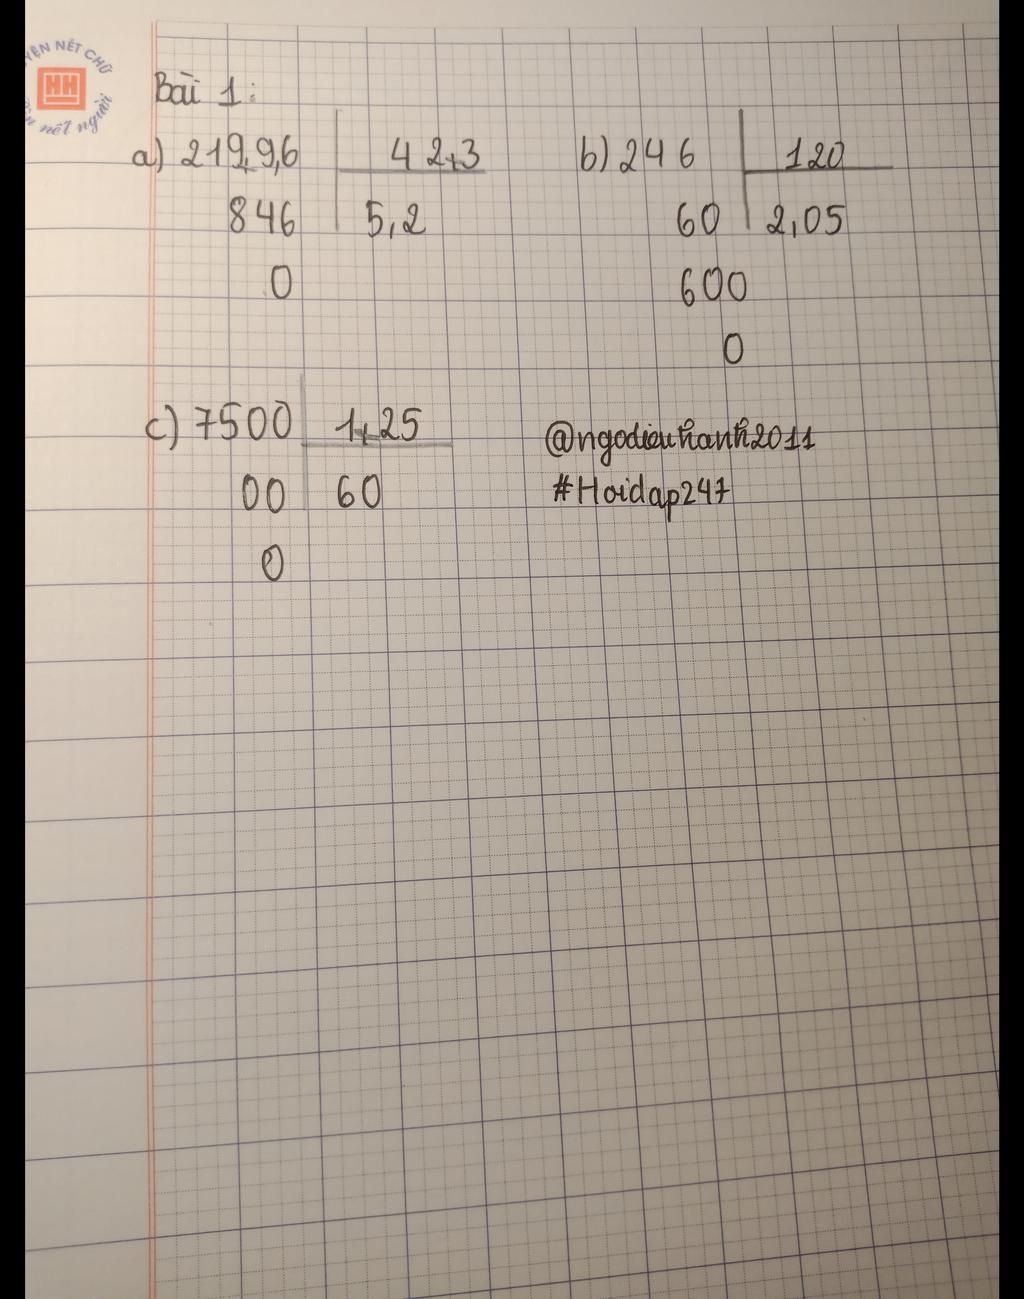 YỆN NẾT CHỮ
HH
ện nết người
Bài 1:
a) 219,9,6 42,3
846 5,2
0
b) 246 120
60 2,05
600
0
c) 7500 1,25
00 60
0
@ngodieuhanh2011
#Hoidap247